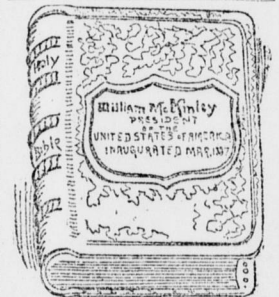 Holy
Bible
William McKinley
PRESIDENT
OF THE
UNITED STATES OF AMERICA
INAUGURATED MAR. 1897